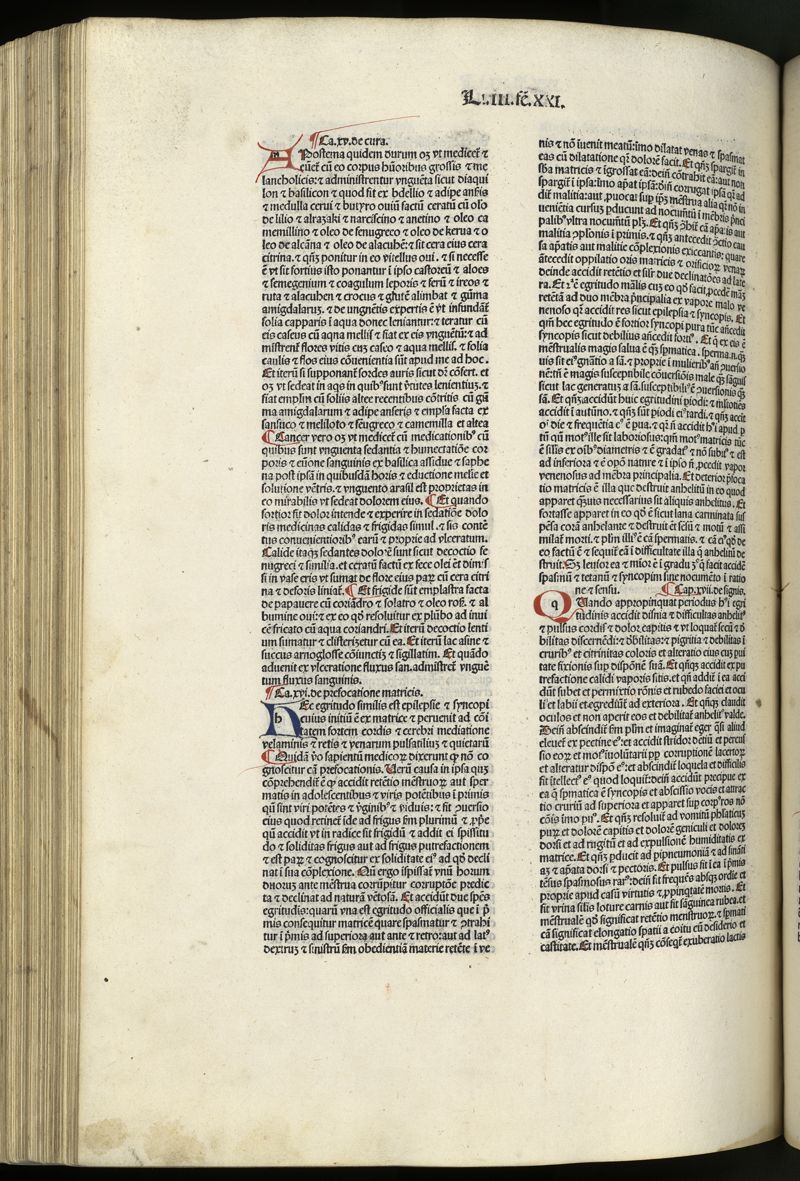 Li. III. fẽ. XXI.
¶Ca.xv.de cura.
APostema quidem durum oʒ vt medicet᷑ ⁊
cuet᷑ cũ eo corpus hũoribus grossis ⁊ me
lancholicis: ⁊ administrentur vngueta sicut diaqui
lon ⁊ basilicon ⁊ quod fit ex bdellio ⁊ adipe ansis
⁊ medulla cerui ⁊ butyro ouiũ factũ ceratũ cũ oĺo
de lilio ⁊ alrazaki ⁊ narciscino ⁊ anetino ⁊ oleo ca
memillino ⁊ oleo de fenugreco ⁊ oleo de kerua ⁊ o
leo de alcãna ⁊ oleo de alacuhẽ: ⁊ sit cera eius cera
citrina. ⁊ qñꝫ ponitur in eo vitellus oui. ⁊ si necesse
ẽ vt sit fortius isto ponantur ĩ ipso castoreũ ⁊ aloes
⁊ semegenium ⁊ coagulum leporis ⁊ serũ ⁊ ireos ⁊
ruta ⁊ alacuben ⁊ crocus ⁊ glutẽ alimbat ⁊ gũma
amigdalaruʒ. ⁊ de ungnẽtis expertis ẽ vt infundãt᷑
folia capparis ĩ aqua donec leniantur: ⁊ teratur cũ
eis caseus cũ aqua melĺ ⁊ fiat ex eis vnguẽtũ: ⁊ ad
mistrent᷑ flores vitis cuʒ caseo ⁊ aqua melĺ. ⁊ folia
caulis ⁊ flos eius cõuenientia sũt apud me ad hoc.
Et iterũ si supponant᷑ sordes auris sicut dr̃ cõfert. et
oʒ vt sedeat in aqs in quibꝰ sunt v̾tutes lenientiuʒ. ⁊
fiat emplm̃ cũ foliis altee recentibus cõtritis cũ gũ
ma amigdalarum ⁊ adipe anseris ⁊ empĺa facta ex
sansuco ⁊ meliloto ⁊ feugreco ⁊ camemilla et altea
¶Cancer vero oʒ vt medicet᷑ cũ medicationibꝰ cũ
quibus sunt vnguenta sedantia ⁊ humectatiõe cor
poris ⁊ eũone sanguinis ex basilica assidue ⁊ saphe
na post ipsã in quibusdã horis ⁊ eductione melie et
solutione vẽtris. ⁊ vnguento arasil est proprietas in
eo mirabilis vt sedeat dolorem eius. ¶Et quando
fortior fit dolor intende ⁊ experire in sedatiõe dolo
ris medicinas calidas ⁊ frigidas simul. ⁊ sis contẽ
tus conuenientioribꝰ earũ ⁊ proprie ad vlceratum.
Calide itaqꝫ sedantes dolorẽ sunt sicut decoctio fe
nugreci ⁊ similia. et ceratũ factũ ex fece olei et dimis
si in vase eris vt sumat de flore eius parꝫ cũ cera citri
na ⁊ deforis liniat᷑. ¶Et frigide sũt emplastra facta
de papauere cũ coriãdro ⁊ solatro ⁊ oleo roſ. ⁊ al
bumine oui: ⁊ ex eo qđ resoluitur ex plũbo ad inui
cẽ fricato cũ aqua coriandri. Et iterũ decoctio lenti
um sumatur ⁊ clisterizetur cũ ea. Et iterũ lac asine ⁊
succus arnoglosse cõiunctiʒ ⁊ sigillatim. Et quãdo
aduenit ex vlceratione fluxus san. admistret᷑ vnguẽ
tum fluxus sanguinis.
¶Ca.xvi.de prefocatione matricis.
HEc egritudo similis est epilepsie ⁊ syncopi
cuius initiũ ẽ ex matrice ⁊ peruenit ad cõi
tatem fortem cordis ⁊ cerebri mediatione
velaminis ⁊ retis ⁊ venarum pulsatiliuʒ ⁊ quietarũ
¶Quidã vo sapientũ medicoꝝ dixerunt qꝫ nõ co
gnoscitur cã prefocationis. Uerũ causa in ipsa quʒ
cõprehendit᷑ ẽ qꝫ accidit retẽtio mẽstruoꝝ aut sper
matis in adolescentibus ⁊ viris potẽtibus ĩ primis
qũ sint viri potẽtes ⁊ v̾ginibꝰ ⁊ viduis: ⁊ fit ↄuersio
eius quod retinet᷑ ide ad frigus fm̃ plurimũ ⁊ ꝓpe
qũ accidit vt in radice sit frigidũ ⁊ addit ei spissitu
do ⁊ soliditas frigus aut ad frigus putrefactionem
⁊ est paꝝ ⁊ cognoscitur ex soliditate eiꝰ ad qđ decli
nat ĩ sua cõplexione. Qũ ergo ispissat᷑ vnũ horum
duoruʒ aute mẽstrua corrũpitur corruptõe predic
ta ⁊ declinat ad naturã vẽtosã. Et accidũt due spẽs
egritudis: quarũ vna est egritudo officialis que ĩ p̃
mis consequitur matricẽ quare spasmatur ⁊ ↄtrahi
tur ĩ p̃mis ad superiora aut ante ⁊ retro: aut ad latꝰ
dextruʒ ⁊ sinistrũ fm̃ obedientiã materie retẽte ĩ ve
nis ⁊ nõ ĩuenit meatũ: ĩmo dilatat venas ⁊ spasmat
eas cũ dilatatione qr̃ dolorẽ facit. Et qñꝫ spargit᷑ in
sba matricis ⁊ ĩgrossat eã: dein cõtrahit eã: aut non
spargit᷑ ĩ ipsa: imo
malitia ꝯplonis ĩ primis. ⁊ qñꝫ antecedit
antecedit oppilatio oris matricis ⁊ orificioꝝ venaꝝ
deinde accidit retẽtio ⁊ fiĺr due declinatões ad late
ra. Et ẽ egritudo malis cuʒ eo qđ facit
retẽtã ad duo mẽbra p̃ncipalia ex vapore malo ve
nenoso qr̃ accidit res sicut epilepsia ⁊ syncopis. Et
qm̃ hec egritudo ẽ fortior syncopi pura tũc ancedit
syncopis sicut debilius ancedit fortiꝰ.
menstrualis magis salua ẽ
nẽ: tñ ẽ magis susceptibile cõuersiõis male
sicut lac generatuʒ a sã.
sã. Et qñꝫ accidũt huic egritudini piodi:
accidit ĩ autũno. ⁊ qñꝫ sũt piodi eiꝰ tardi.
tũ qũ motꝰ ille sit laboriosus: qm̃ motꝰ matricis tũc
ẽ silis ex oibꝰ diametris ⁊ ẽ gradaſ ⁊ nõ subitꝰ ⁊ est
ad inferiora ⁊ ẽ opo nature ⁊ ĩ ipso ñ ꝓcedit vapor
venenosus ad mẽbra principalia. Et deterior
matricis ẽ illa que destruit anhelitũ in eo quod
apparet qꝫuis necessarius sit aliquis anhelitus. Et
fortasse apparet in eo qđ ẽ sicut lana carminata sus
pẽsa corã anhelante ⁊ destruit ẽt sẽsũ ⁊ motũ ⁊ assi
milat᷑ morti. ⁊ plm̃ illiꝰ ẽ cã spermatis. ⁊ cã eiꝰ qđ de
eo factũ ẽ ⁊ sequit᷑ eã ĩ difficultate illa q̃ anhelitũ de
struit. Sʒ lenior ea ⁊ mior ẽ ĩ gradu
spasmũ ⁊ tetanũ ⁊ syncopim sine nocumẽto ĩ ratio
ne ⁊ sensu. ¶Cap.xvii.de signis.
QUando appropinquat periodus hꝰ egri
tudinis accidit disnia ⁊ difficultas anhelitꝰ
⁊ pulsus cordis ⁊ dolor capitis ⁊ vt loquat᷑ secũ ⁊ d
bilitas discernẽdi: ⁊ debilitas: ⁊ pigritia ⁊ debilitas ĩ
cruribꝰ et citrinitas coloris ⁊ alteratio eius cuʒ pau
tate fixionis sup dispõne suã. Et qñꝫ accidit ex pu
trefactione calidi vaporis sitis. et qñ addit᷑ ĩ ea acci
dũt subet ⁊ permixtio rõnis ⁊ rubedo faciei et ocu
li ⁊ labii et egrediũt᷑ ad exteriora. Et qñꝫ claudit
oculos et non aperit eos ⁊ debilitat᷑ anhelitꝰ valde.
Dein abscindit᷑ fm̃ plm̃ et imaginat᷑ eger qsi aliud
eleuet᷑ ex pectine eꝰ: et accidit stridor dẽtiũ et percus
sio eoꝝ et motꝰ inuoluntarii pp corruptionẽ lacertoꝝ
et alteratur dispõ eꝰ: et abscindit᷑ loquela et difficilis
fit ĩtellectꝰ eꝰ quod loquit᷑: dein accidũt precipue ex
ea q̃ spmatica ẽ syncopis et abscissio vocis et attrac
tio cruriũ ad superiora et apparet sup corpꝰ ros nõ
cõis ĩmo pusꝰ. Et qñꝫ resoluit᷑ ad vomitũ phlaticuʒ
puꝝ et dolorẽ capitis et dolorẽ geniculi et dolorẽʒ
dorsi et ad rugitũ et ad expulsionẽ humiditatis ex
matrice. Et qñꝫ ꝓducit ad pipneumoniã ⁊ ad sinãti
aʒ ⁊ apata dorsi ⁊ pectoris. Et pulsus fit ĩ ea ĩ p̃mis
tẽsus spasmosus rarꝰ: dein fit frequẽs absqꝫ ordie et
proprie apud casũ virtutis ⁊ ꝓpinqtatẽ mortis. Et
fit vrina silis loture carnis aut fit sãguinea rubea. et
mẽstruale qđ significat retẽtio menstruoꝝ. ⁊ spmati
cã significat elongatio spatii a coitu cũ desiderio et
castitate. Et mẽstrualẽ qñꝫ cõseqt᷑ exuberatio lactis